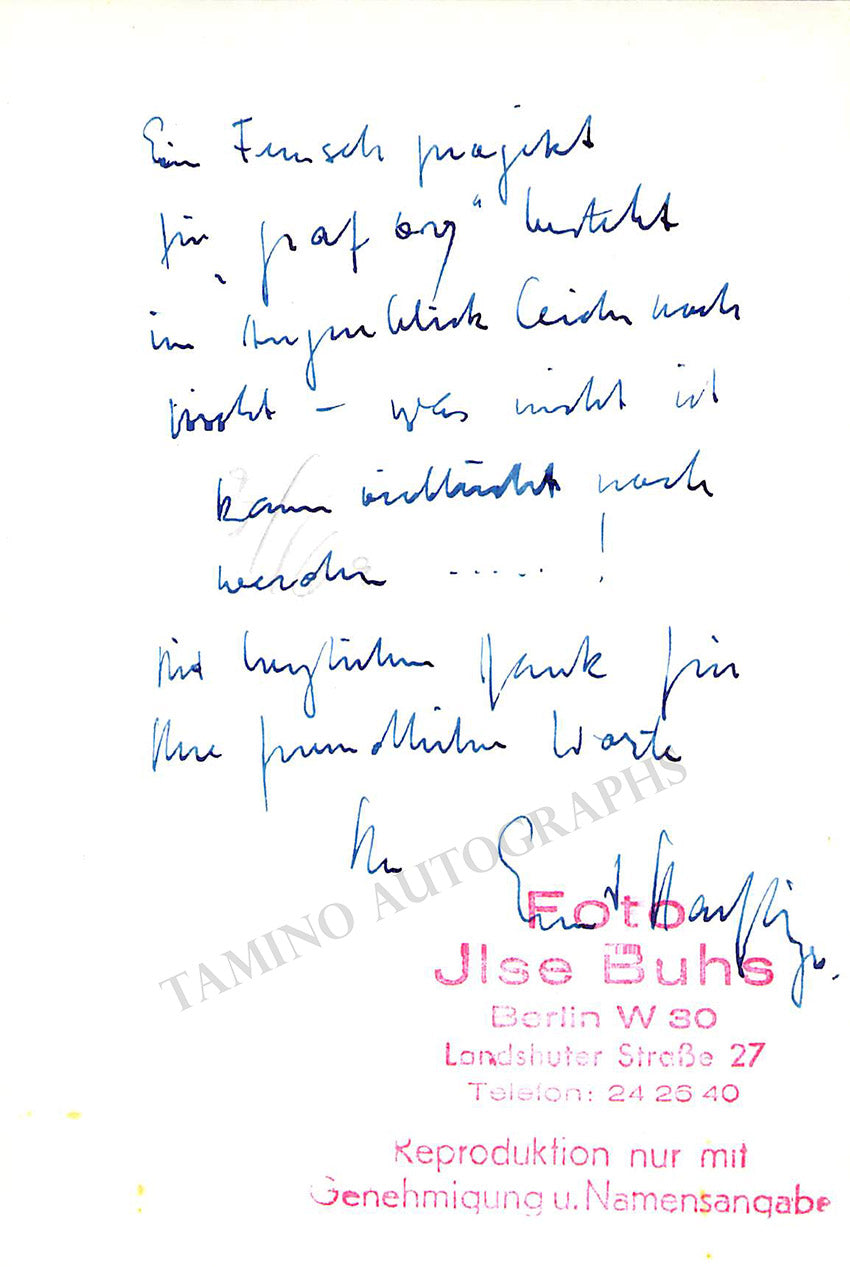 Ein Fernsehprojekt
für „Graf Öry“ besteht
im Augenblick leider noch
nicht – was nicht ist
kann vielleicht noch
werden .....!
Mit herzlichem Dank für
Ihre freundlichen Worte
Ihr Ernst Haefliger.
TAMINO AUTOGRAPHS
Foto
Jlse Buhs
Berlin W 30
Landshuter Straße 27
Telefon: 24 26 40
Reproduktion nur mit
Genehmigung u. Namensangabe